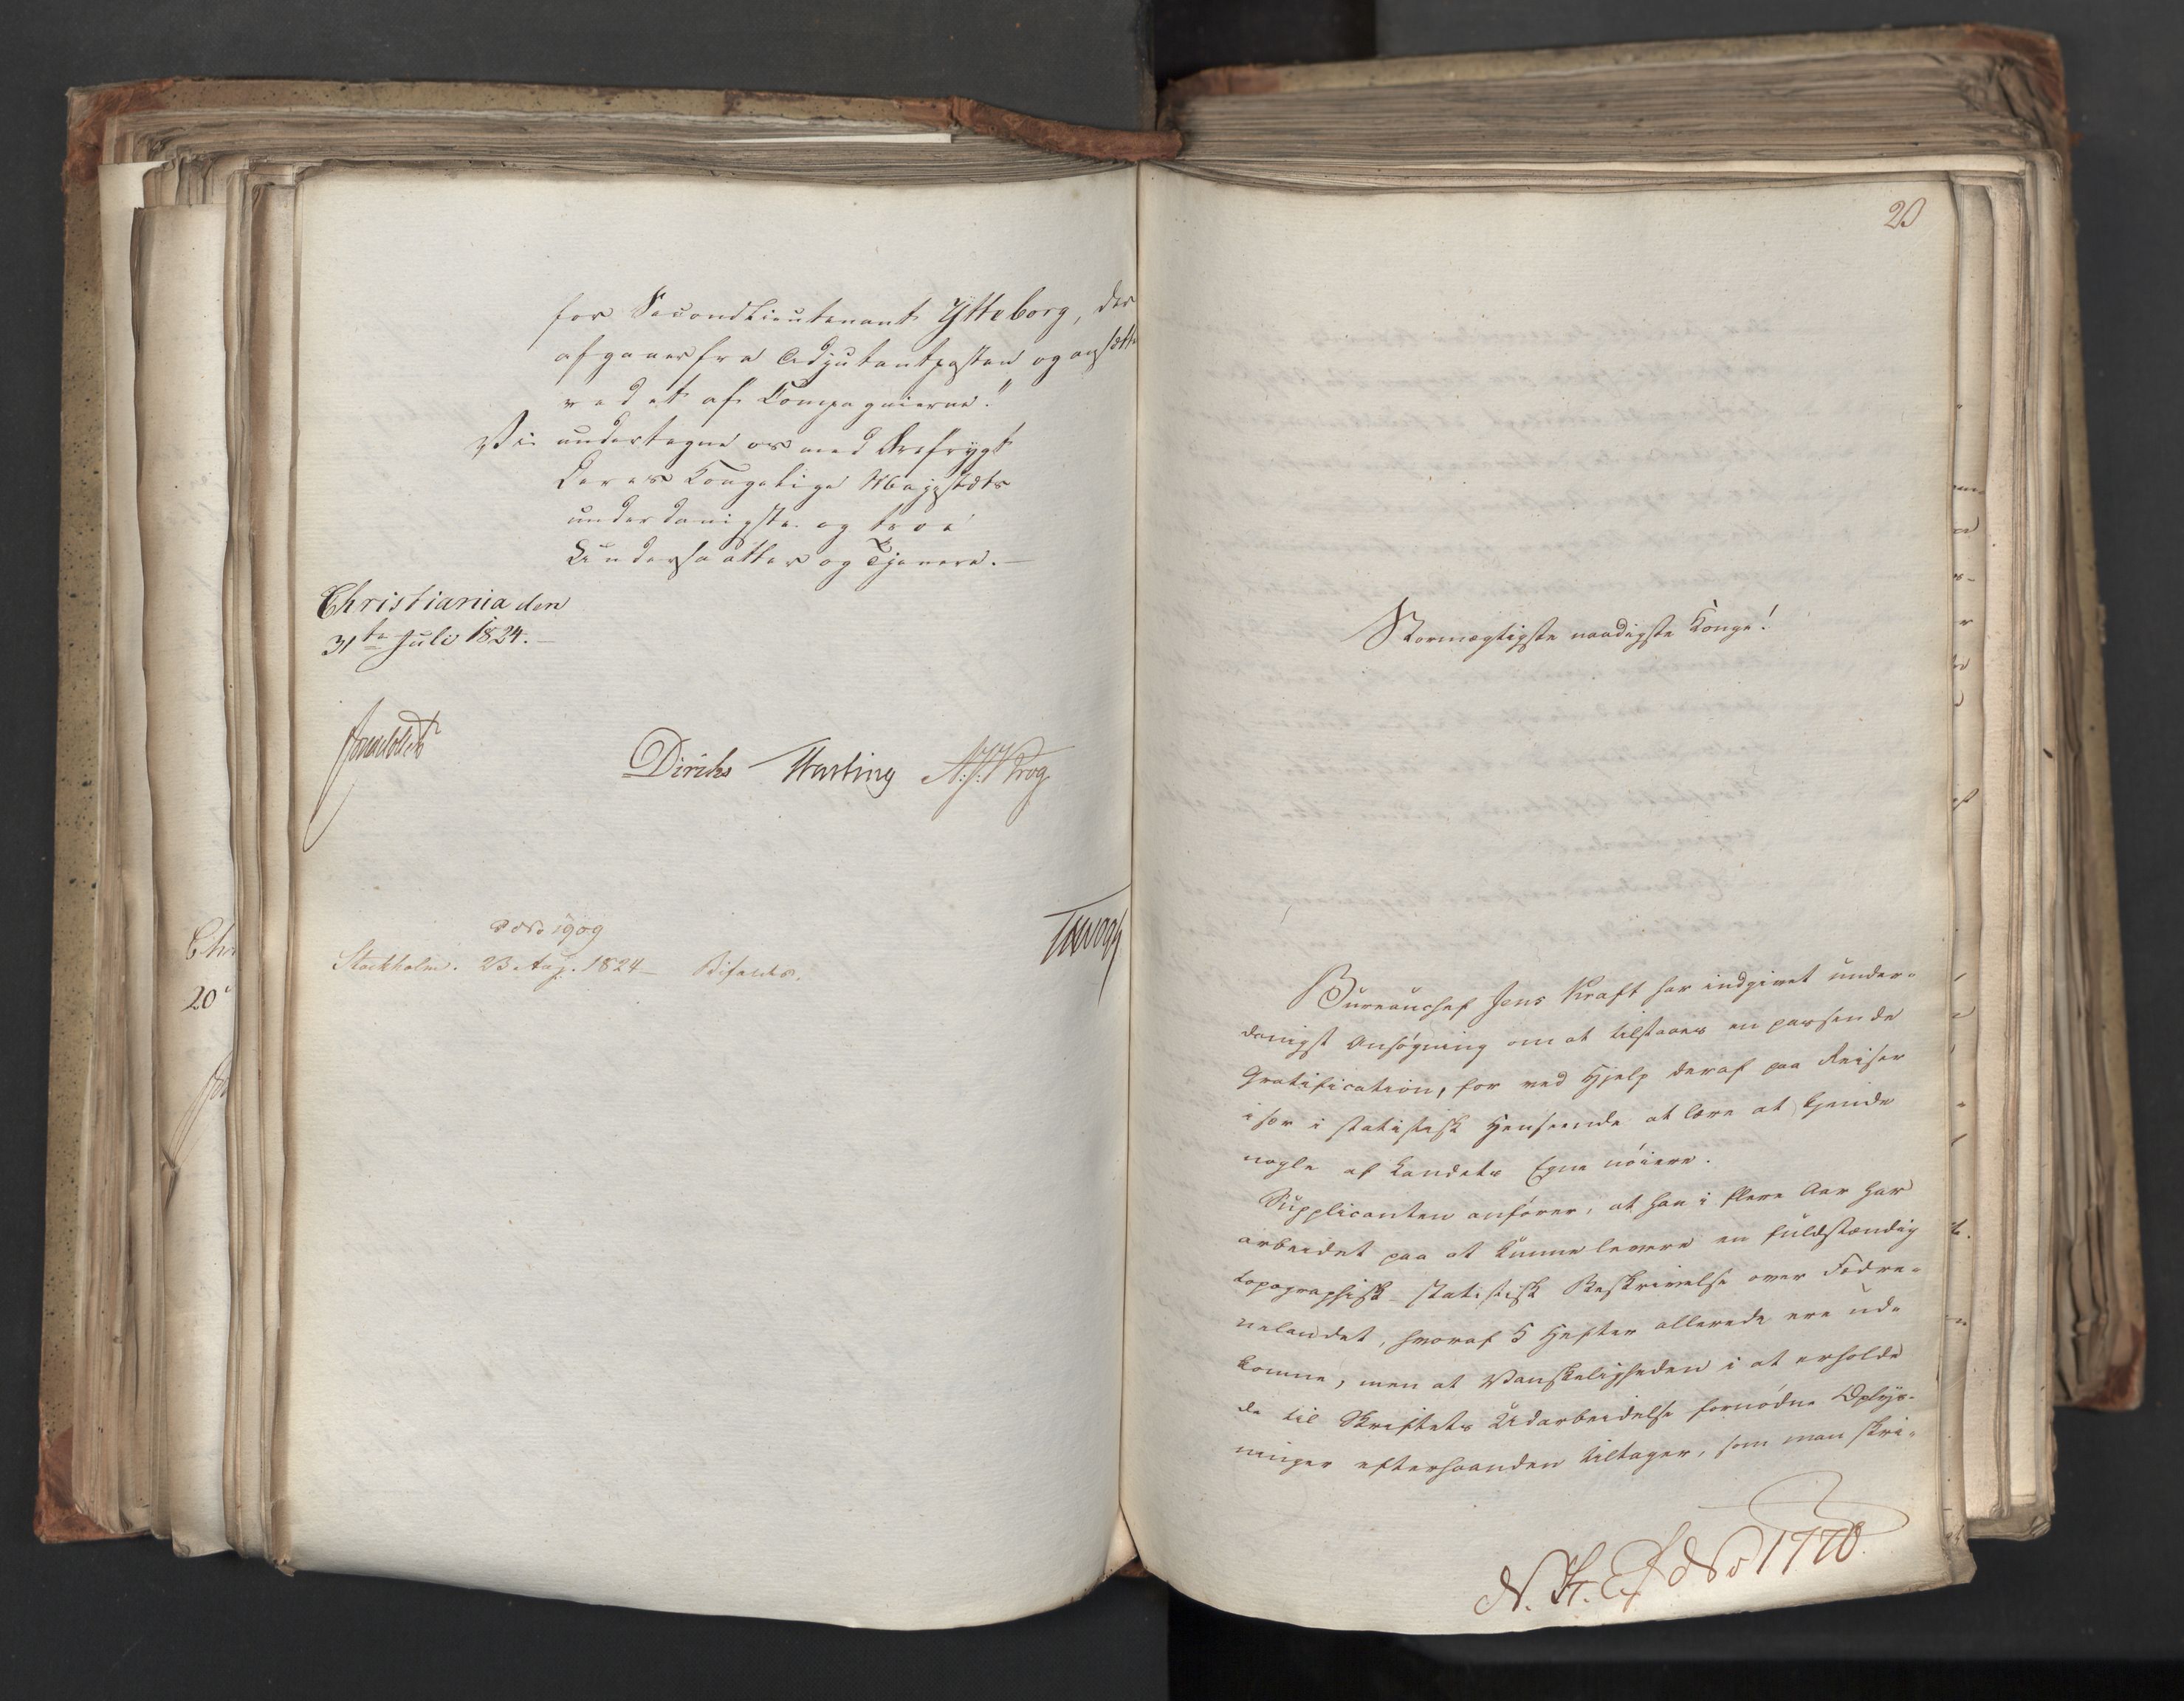 for SecondLieutenant Ytteborg, der
afgaaer fra Adjutantposten og ansætt
ved et af Compagnierne."
Vi undertegne os med Ærefrygt
Deres Kongelige Majestæts
underdanigste og troe
Undersaatter og Tjenere.
Christiania den
31te Juli 1824.
Diriks
No 1909
Stockholm. 23 Aug. 1824 Bifaldes.
20
Stormægtigste naadigste Konge!
Bureauchef Jens Kraft har indgivet under-
danigst Ansøgning om at tilstaaes en passende
Gratification, for ved Hjelp deraf paa Reiser
især i statistisk Henseende at lære at kjende
nogle af Landets Egne nöiere.
Supplicanten anförer, at han i flere Aar har
arbeidet paa at kunne levere en fuldstændig
topographisk-statistisk Beskrivelse over Fædre-
nelandet, hvoraf 5 Hefter allerede ere ud-
komne, men at Vanskeligheden i at erholde
de til Skriftets Udarbeidelse fornödne Oplys-
ninger efterhaanden tiltager, som man skri-
No 1770.
Chr
20